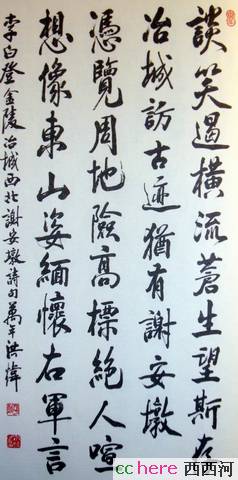 談笑遏橫流蒼生望斯存
冶城訪古迹猶有謝安墩
憑覽周地險高標絕人喧
想像東山姿緬懷右軍言
李白登金陵冶城西北謝安墩詩句萬洪
cchere 西西河